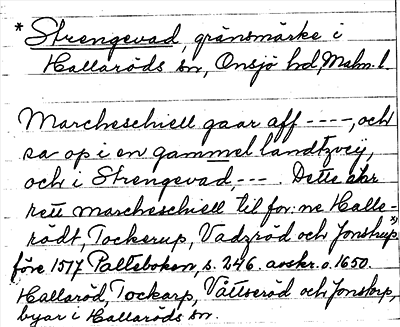 * Strengevad, gränsmärke i
Hallaröds sn, Onsjö hd, Malm. l.
Marcheschiell gaar aff ----, och
sa op i en gammel landtzveÿ,
och i Strengevad, --- . Dette ähr
rett marcheschiell til for:ne Halle-
rödt, Tockerup, Vadzröd och Jonstrup.*)
före 1577 Palteboken, s. 246. avskr. o. 1650.
Hallaröd, Tockarp, Vättseröd och Jonstorp,
byar i Hallaröds sn.